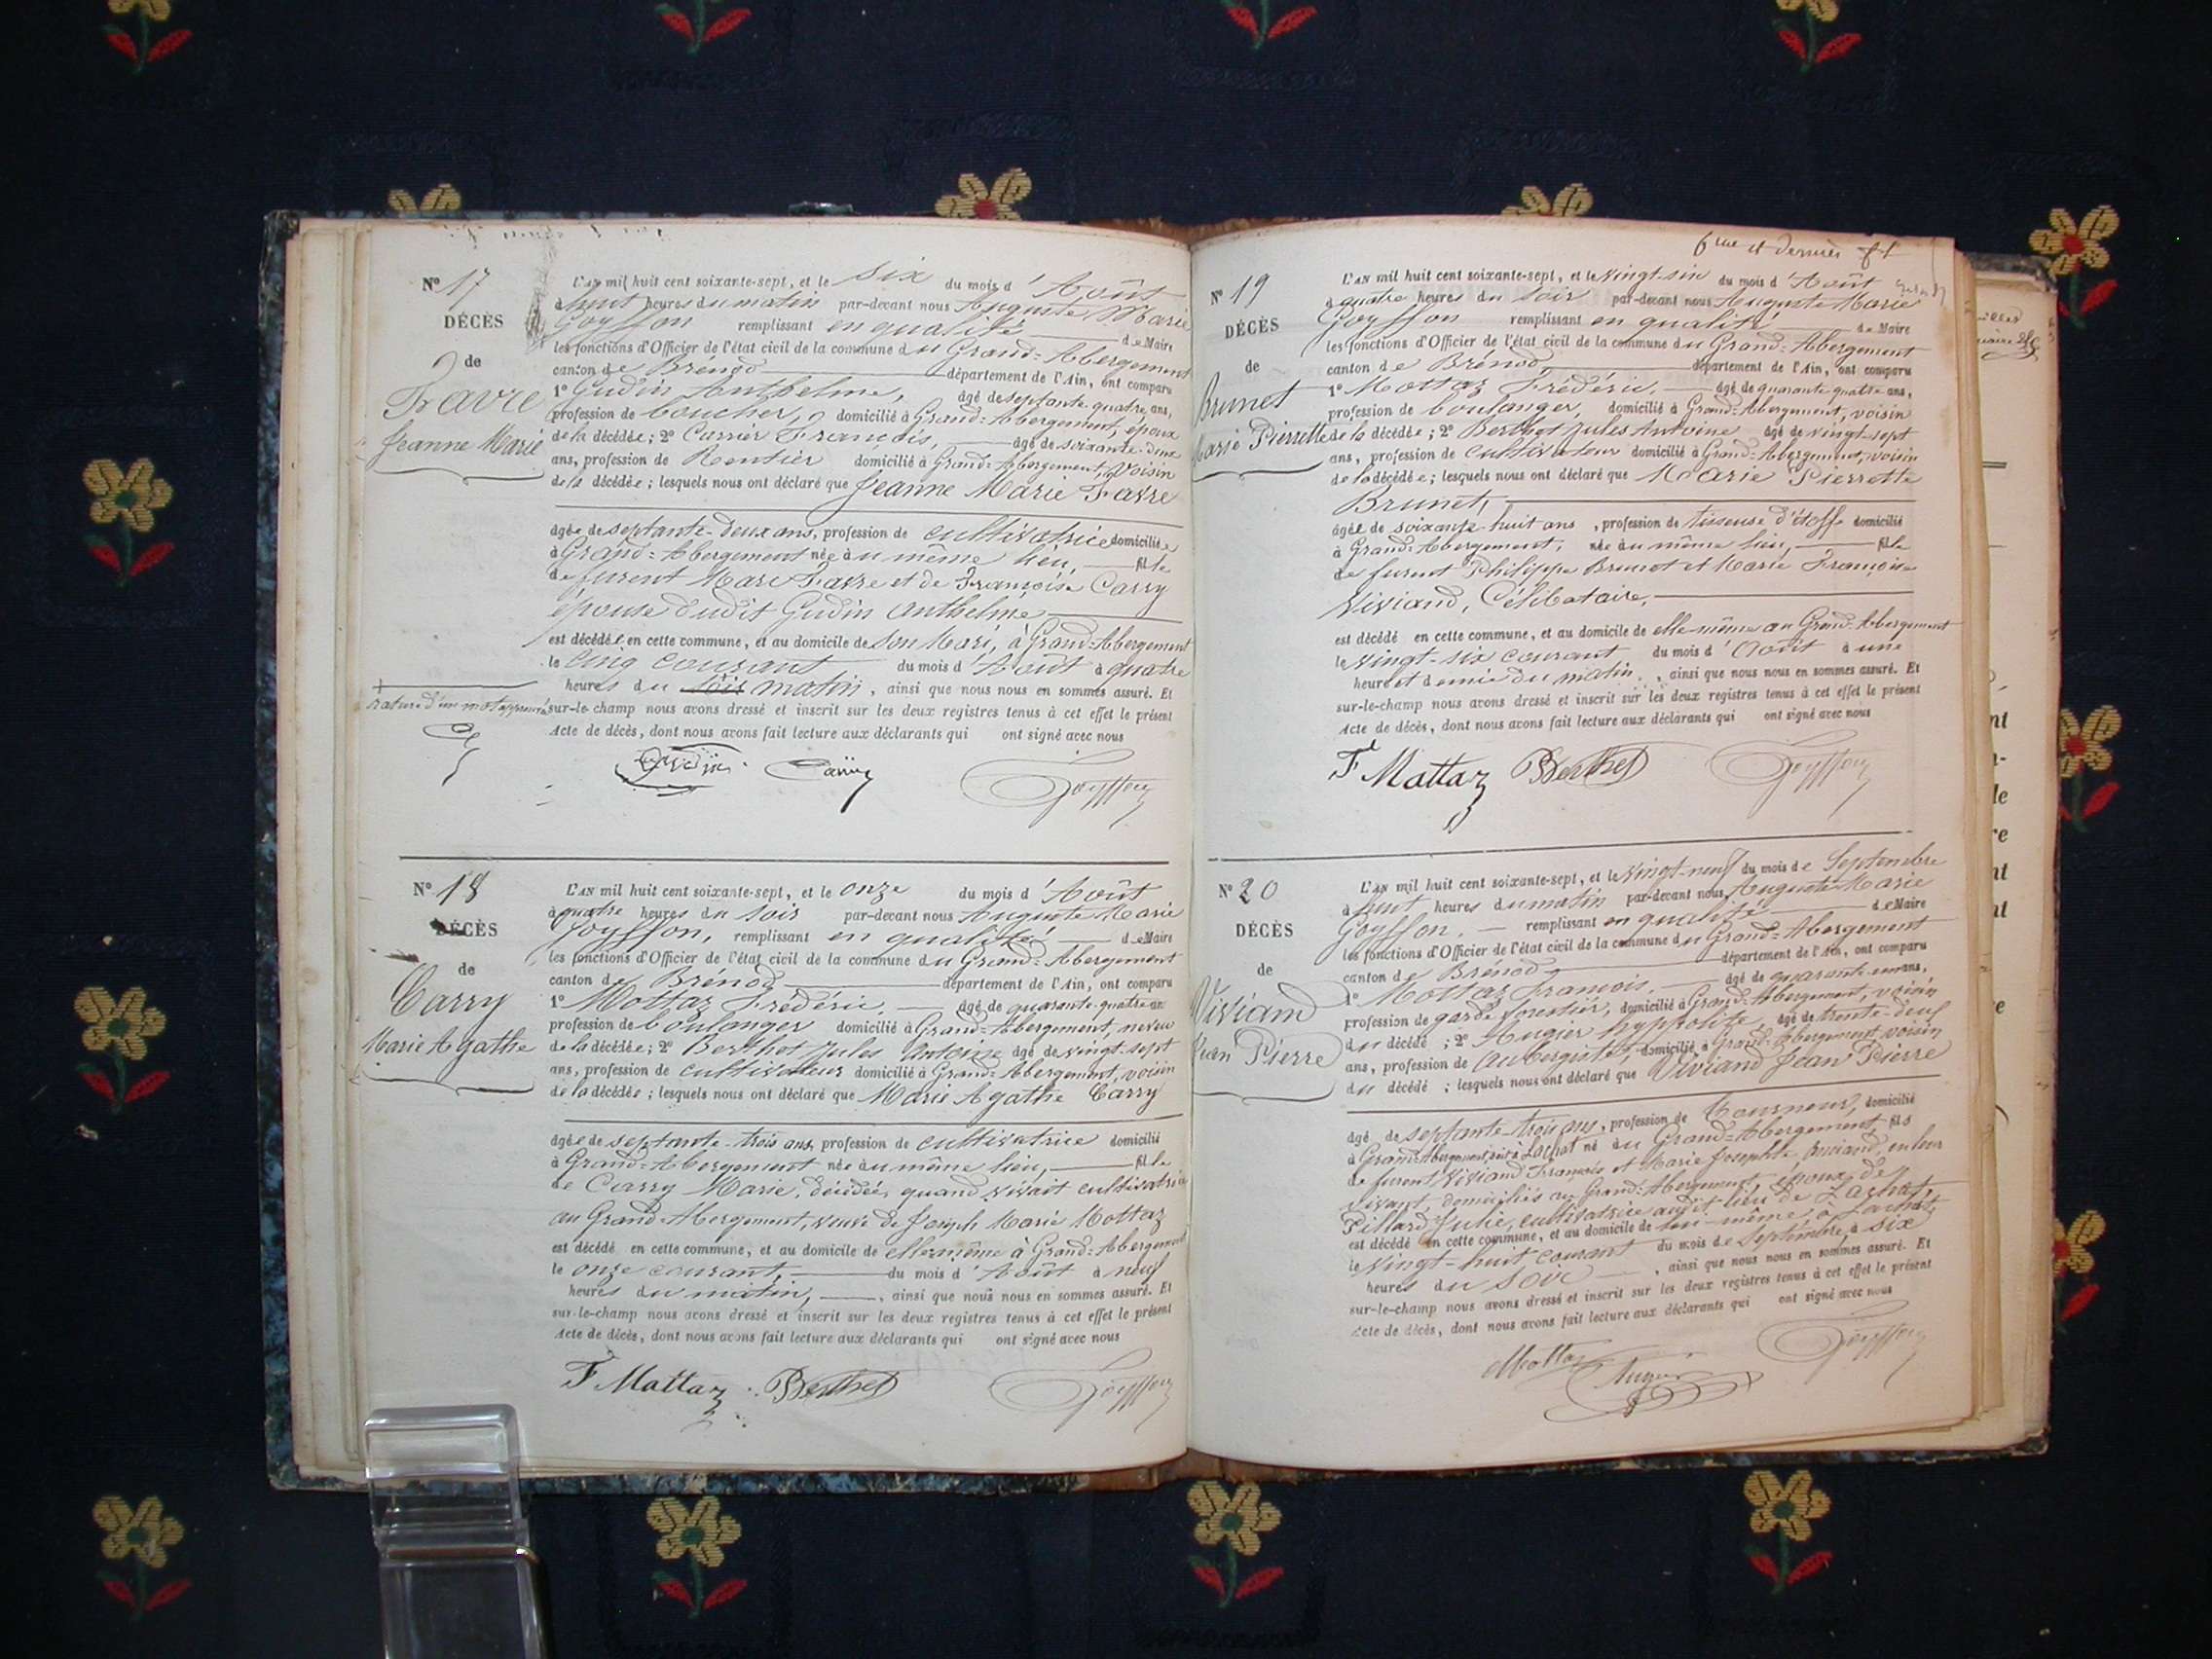 Nº 17
DÉCÈS
de
Favre
Jeanne Marie
L'AN mil huit cent soixante-sept, et le six du mois d'Août
à huit heures du matin par-devant nous Auguste Marie
Goyffon remplissant en qualité de Maire
les fonctions d'Officier de l'état civil de la commune du Grand-Abergement
canton de Brénod département de l'Ain, ont comparu
1º Gudin Anthelme, âgé de septante quatre ans,
profession de boucher, domicilié à Grand-Abergement, époux
de la décédée; 2º Carrier François, âgé de soixante-deux
ans, profession de Rentier domicilié à Grand-Abergement, voisin
de la décédée; lesquels nous ont déclaré que Jeanne Marie Favre
âgée de septante-deux ans, profession de cultivatrice domiciliée
à Grand-Abergement née au même lieu, fille
de furent Marc Favre et de Françoise Carry
épouse dudit Gudin Anthelme
est décédée en cette commune, et au domicile de son Mari, à Grand-Abergement
le cinq courant du mois d'Août à quatre
heures du soir matin, ainsi que nous nous en sommes assuré. Et
sur-le-champ nous avons dressé et inscrit sur les deux registres tenus à cet effet le présent
Acte de décès, dont nous avons fait lecture aux déclarants qui ont signé avec nous
rature d'un mot approuvée
Gudin Goyffon
Nº 18
DÉCÈS
de
Carry
Marie Agathe
L'AN mil huit cent soixante-sept, et le onze du mois d'Août
à quatre heures du soir par-devant nous Auguste Marie
Goyffon, remplissant en qualité de Maire
les fonctions d'Officier de l'état civil de la commune du Grand-Abergement
canton de Brénod département de l'Ain, ont comparu
1º Mottaz Frédéric, âgé de quarante-quatre ans
profession de boulanger domicilié à Grand-Abergement, neveu
de la décédée; 2º Berthet Jules Antoine âgé de vingt-sept
ans, profession de cultivateur domicilié à Grand-Abergement, voisin
de la décédée; lesquels nous ont déclaré que Marie Agathe Carry
âgée de septante-trois ans, profession de cultivatrice domicilié
à Grand-Abergement née au même lieu, fille
de Carry Marie, décédée, quand vivait cultivatrice
au Grand-Abergement, veuve de Joseph Marie Mottaz
est décédé en cette commune, et au domicile de elle-même à Grand-Abergement
le onze courant, du mois d'Août à neuf
heures du matin, ainsi que nous nous en sommes assuré. Et
sur-le-champ nous avons dressé et inscrit sur les deux registres tenus à cet effet le présent
Acte de décès, dont nous avons fait lecture aux déclarants qui ont signé avec nous
F Mattaz Berthet Goyffon
6me et dernier ft
Nº 19
DÉCÈS
de
Brunet
Marie Pierrette
L'AN mil huit cent soixante-sept, et le vingt-six du mois d'Août
à quatre heures du soir par-devant nous Auguste Marie
Goyffon remplissant en qualité de Maire
les fonctions d'Officier de l'état civil de la commune du Grand-Abergement
canton de Brénod département de l'Ain, ont comparu
1º Mottaz Frédéric, âgé de quarante quatre ans,
profession de boulanger, domicilié à Grand-Abergement, voisin
de la décédée; 2º Berthet Jules Antoine âgé de vingt-sept
ans, profession de cultivateur domicilié à Grand-Abergement, voisin
de la décédée; lesquels nous ont déclaré que Marie Pierrette
Brunet,
âgée de soixante-huit ans, profession de tisseuse d'étoffe domicilié
à Grand-Abergement, née au même lieu, fille
de furent Philippe Brunet et Marie Françoise
Viviand, Célibataire,
est décédé en cette commune, et au domicile de elle même au Grand-Abergement
le vingt-six courant du mois d'Août à une
heure et demie du matin, ainsi que nous nous en sommes assuré. Et
sur-le-champ nous avons dressé et inscrit sur les deux registres tenus à cet effet le présent
Acte de décès, dont nous avons fait lecture aux déclarants qui ont signé avec nous
F Mattaz Berthet Goyffon
Nº 20
DÉCÈS
de
Viviand
Jean Pierre
L'AN mil huit cent soixante-sept, et le vingt-neuf du mois de Septembre
à huit heures du matin par-devant nous Auguste Marie
Goyffon. remplissant en qualité de Maire
les fonctions d'Officier de l'état civil de la commune du Grand-Abergement
canton de Brénod département de l'Ain, ont comparu
1º Mottaz François. âgé de quarante-un ans,
profession de garde forestier, domicilié à Grand-Abergement, voisin
du décédé; 2º Augier hyppolite, âgé de trente-deux
ans, profession de Aubergiste, domicilié à Grand-Abergement voisin
du décédé; lesquels nous ont déclaré que Viviand Jean Pierre
âgé de septante-trois ans, profession de Tourneur, domicilié
à Grand-Abergement, soit à Lachat né au Grand-Abergement, fils
de furent Viviand François et Marie Josephte en leur
vivant, domiciliés au Grand-Abergement, époux de
Pillard Julie, cultivatrice audit lieu de Lachat,
est décédé en cette commune, et au domicile de lui-même à Lachat,
le vingt-huit courant du mois de Septembre à six
heures du soir, ainsi que nous nous en sommes assuré. Et
sur-le-champ nous avons dressé et inscrit sur les deux registres tenus à cet effet le présent
Acte de décès, dont nous avons fait lecture aux déclarants qui ont signé avec nous
Mottaz Augier Goyffon